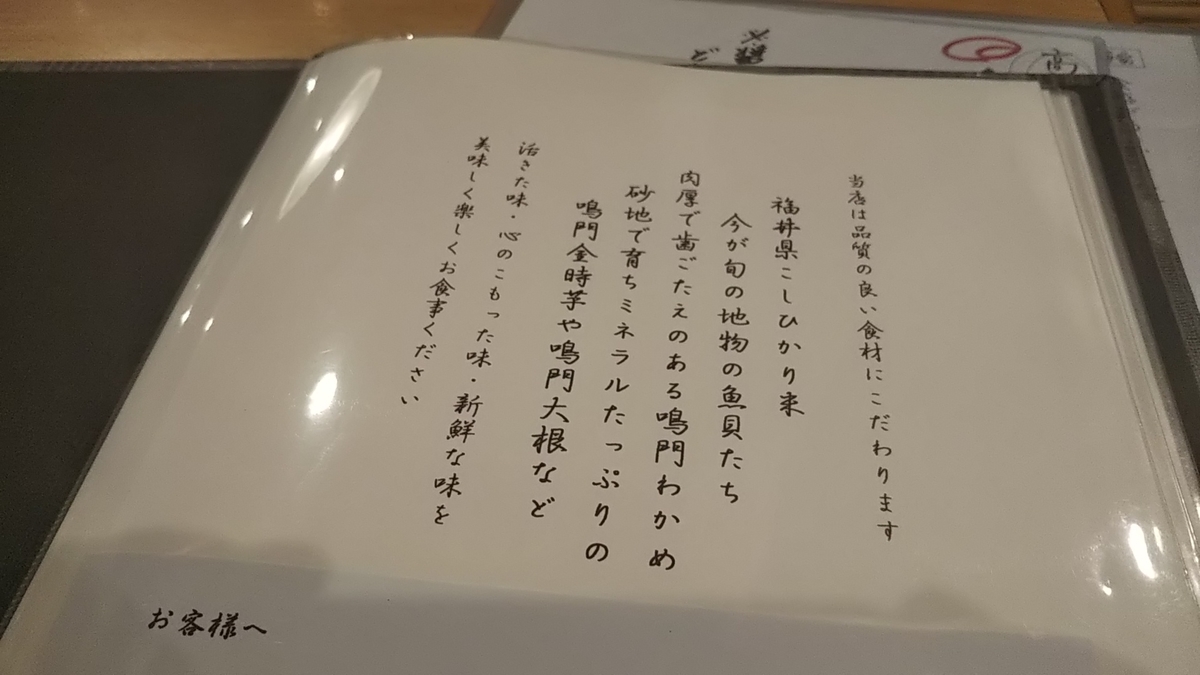 当店は品質の良い食材にこだわります
福井県こしひかり米
今が旬の地物の魚貝たち
肉厚で歯ごたえのある鳴門わかめ
砂地で育ちミネラルたっぷりの
鳴門金時芋や鳴門大根など
活きた味・心のこもった味・新鮮な味を
美味しく楽しくお食事ください
お客様へ